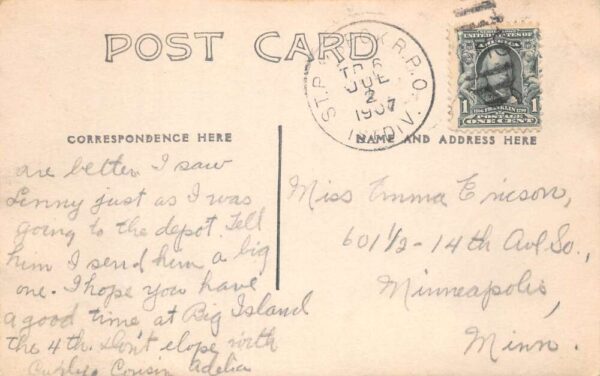 POST CARD
ST. P. & R.P.O.
TR 6
JUL
2
1907
1st DIV.
UNITED STATES OF AMERICA
1 1
POSTAGE
ONE CENT
CORRESPONDENCE HERE
NAME AND ADDRESS HERE
are better. I saw
Lenny just as I was
going to the depot. Tell
him I send him a big
one. I hope you have
a good time at Big Island
the 4th. Don't elope with
Cousin Adelia
Miss Emma Ericson,
601 1/2 - 14th Ave So.,
Minneapolis,
Minn.